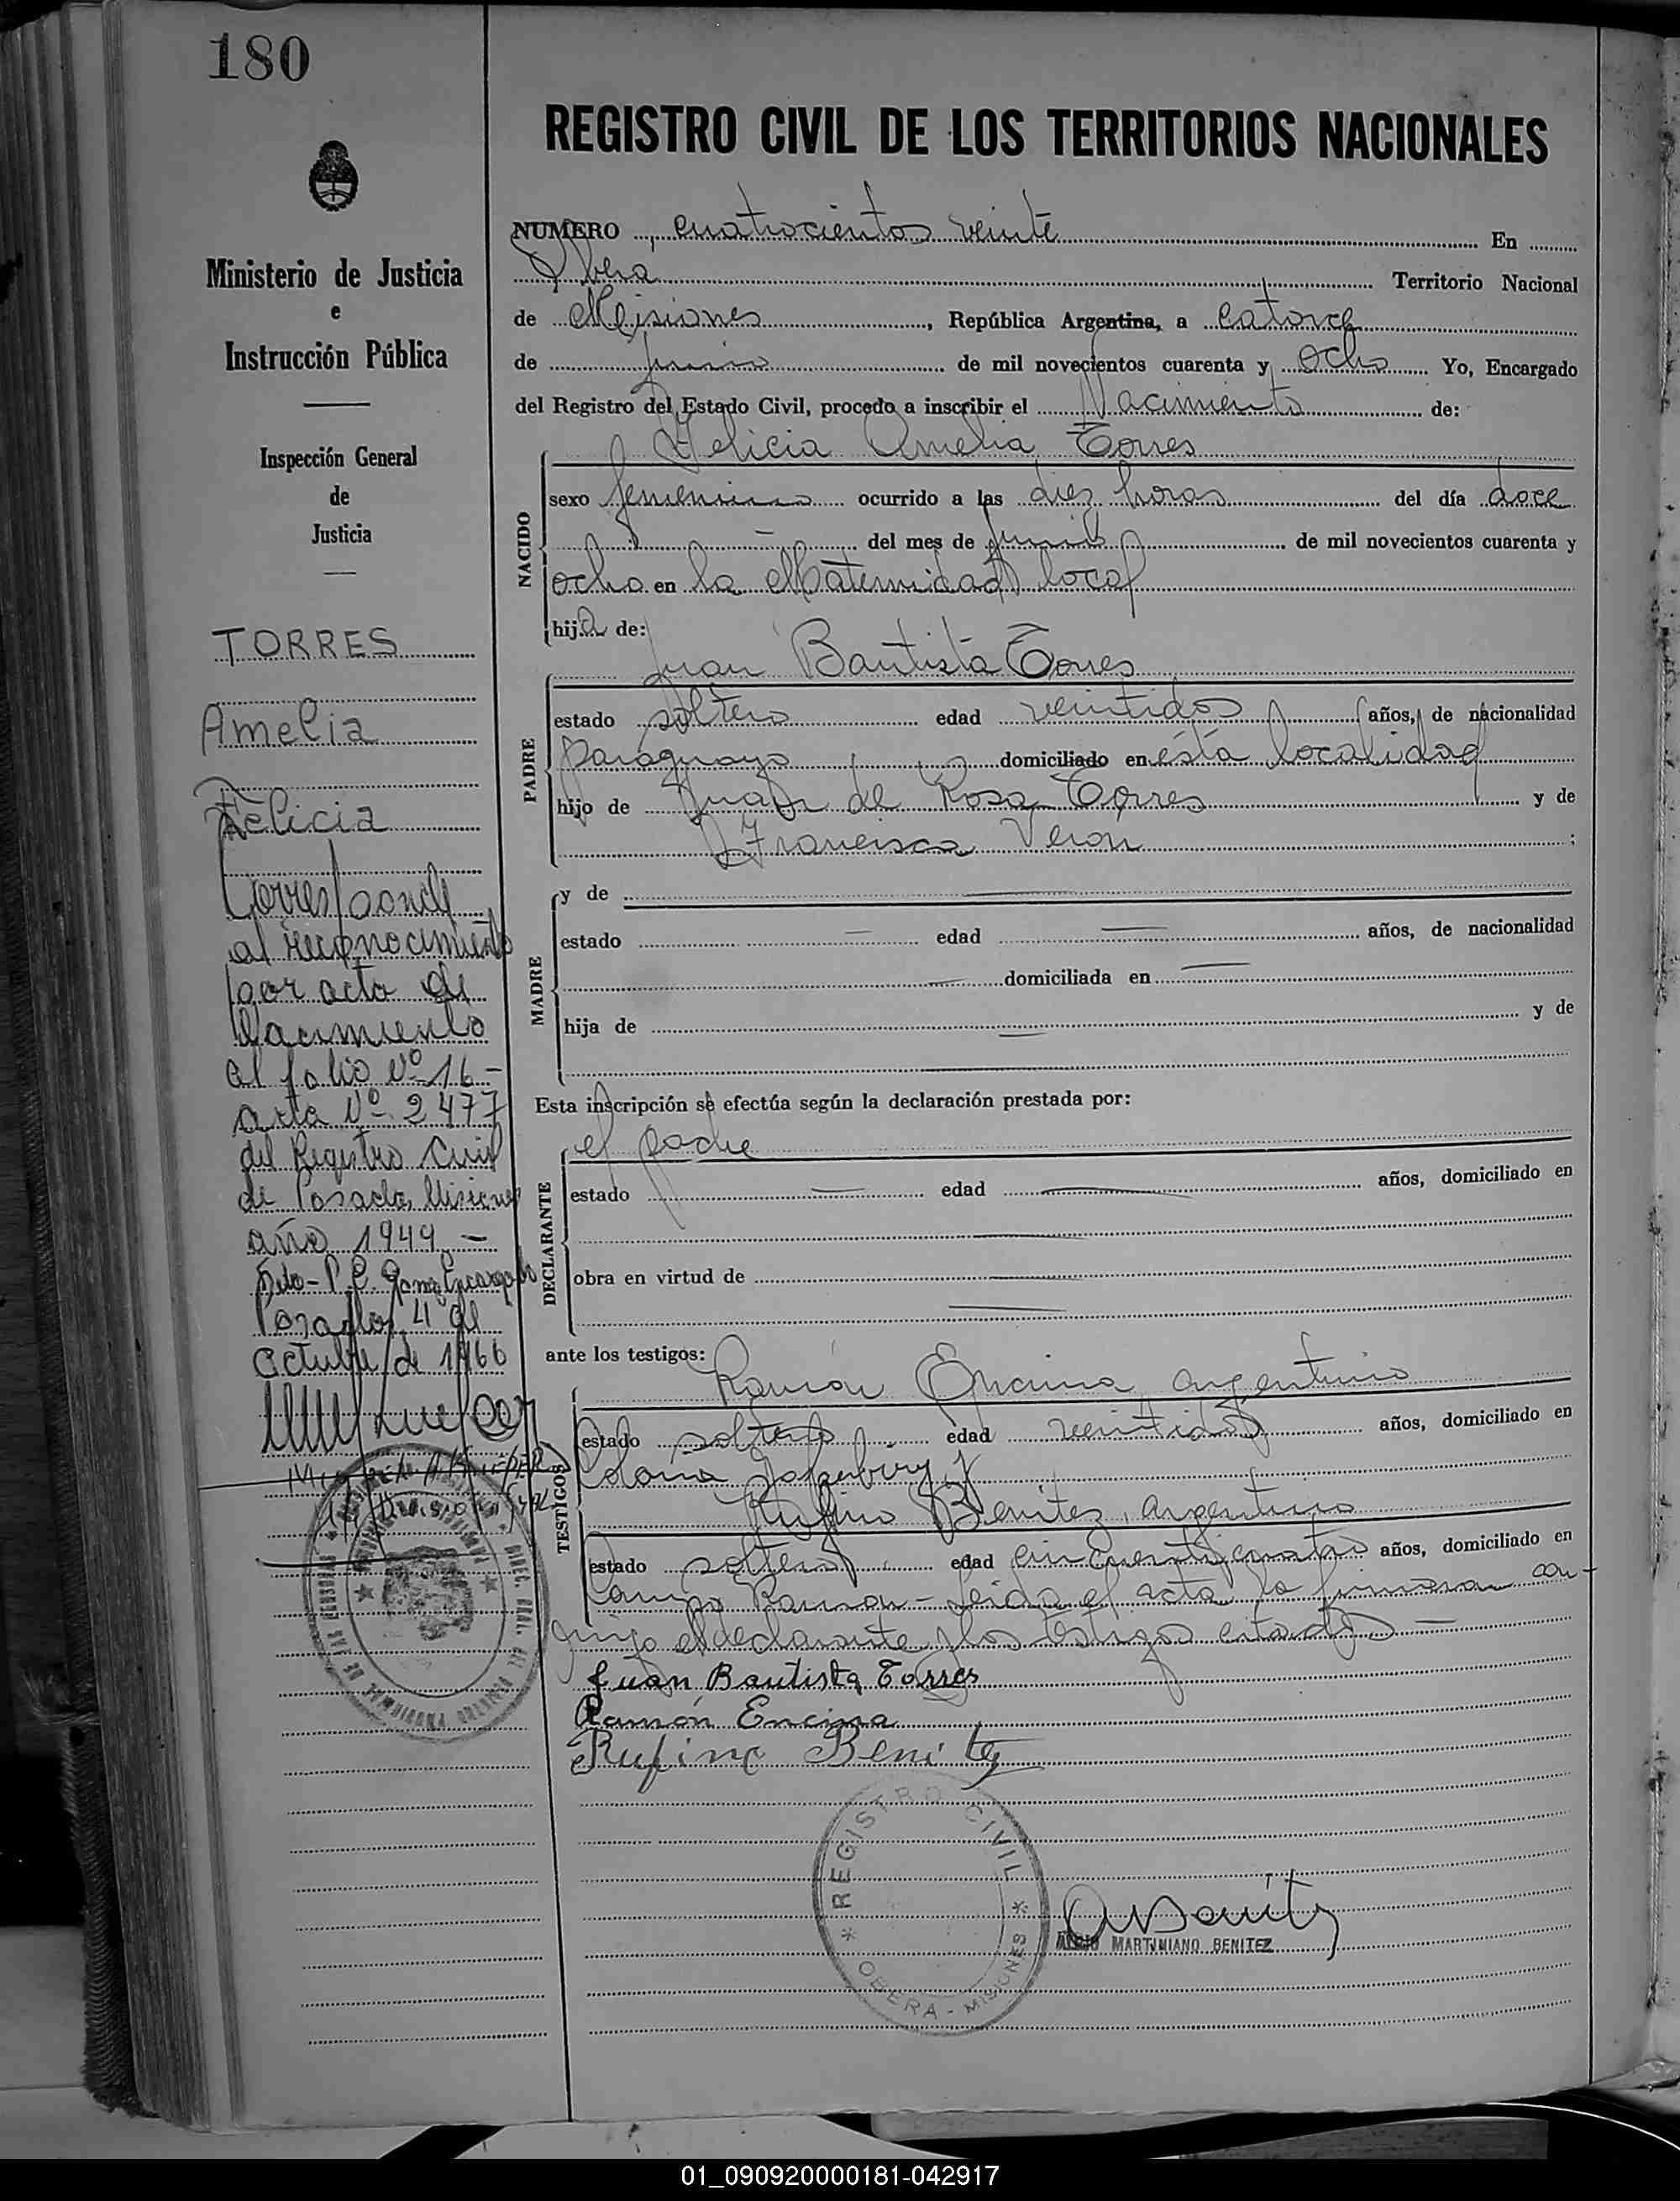 180
REGISTRO CIVIL DE LOS TERRITORIOS NACIONALES
Ministerio de Justicia
e
Instrucción Pública
Inspección General
de
Justicia
TORRES
Amelia
Felicia
Corresponde
al reconocimiento
por acta de
Nacimiento
al folio Nº 16 -
acta Nº 2477
del Registro Civil
de Posadas, Misiones
año 1949 -
Encargado
Posadas, 4 de
Octubre de 1966
NUMERO cuatrocientos veinte En
Oberá Territorio Nacional
de Misiones, República Argentina, a catorce
de junio de mil novecientos cuarenta y ocho Yo, Encargado
del Registro del Estado Civil, procedo a inscribir el Nacimiento de:
Felicia Amelia Torres
NACIDO
sexo femenino ocurrido a las diez horas del día doce
del mes de junio de mil novecientos cuarenta y
ocho en la Maternidad local
hija de:
Juan Bautista Torres
PADRE
estado soltero edad veintidos años, de nacionalidad
paraguayo domiciliado en ésta localidad
hijo de Juan de Rosa Torres y de
Francisca Veron ;
MADRE
y de
estado edad años, de nacionalidad
domiciliada en
hija de y de
Esta inscripción se efectúa según la declaración prestada por:
el padre
DECLARANTE
estado edad años, domiciliado en
obra en virtud de
ante los testigos:
Ramón Encina argentino
TESTIGOS
estado soltero edad veintidos años, domiciliado en
Colonia y
Rufino Benitez, argentino
estado soltero edad cincuenticuatro años, domiciliado en
Campo Ramon - Leida el acta la firmaron con-
migo el declarante y los testigos citados -
Juan Bautista Torres
Ramón Encina
Rufino Benitez
REGISTRO CIVIL
* OBERA - MISIONES *
MARTINIANO BENITEZ
01_090920000181-042917